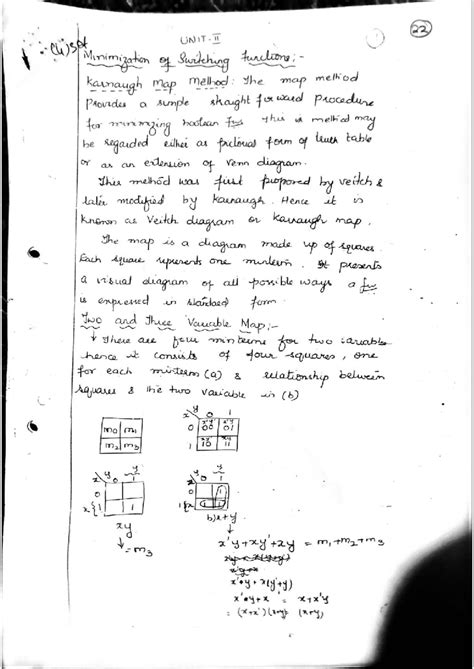 UNIT-II
22
Minimization of Switching Functions:-
Karnaugh Map Method: The map method
Provides a simple straight forward procedure
for minimizing boolean Fns. This is method may
be regarded either as pictorial form of truth table
or as an extension of Venn diagram.
This method was first proposed by veitch &
later modified by Karnaugh. Hence it is
known as Veitch diagram or Karnaugh map.
The map is a diagram made up of squares.
Each square represents one minterm. It presents
a visual diagram of all possible ways a fn
is expressed in standard form
Two and Three Variable Map:-
↓ There are four minterms for two variables
hence it consists of four squares, one
for each minterm (a) & relationship between
squares & the two variable in (b)
m0 m1
m2 m3
x y 0 1
0 00 01
1 10 11
x y 0 1
0
x{1 1
xy
↓
= m3
x y 0 1
0 1
1{x 1 1
b) x+y
↓
x'y + xy' + xy = m1+m2+m3
x'•y + x(y'+y)
x'•y + x = x+x'y
= (x+x')(x+y) (x+y)